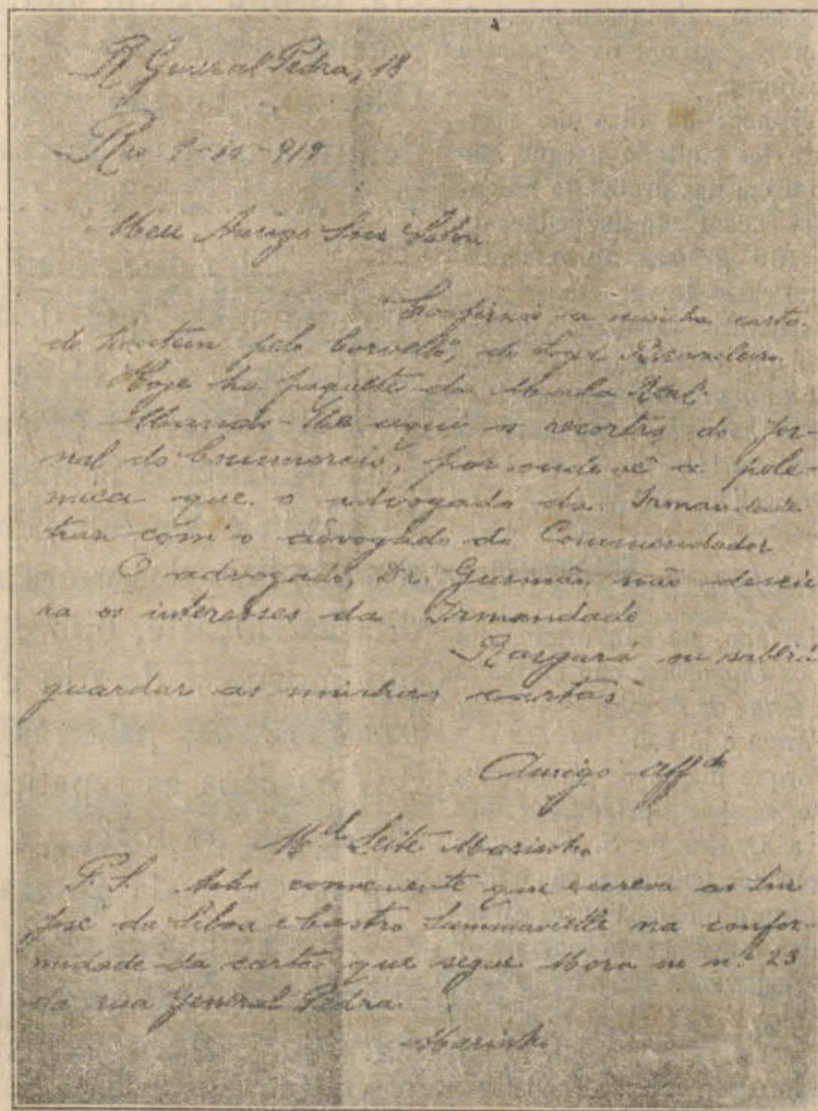 R General Pedra, 18
Rio 1-10-919
Meu Amigo Snr Silva
Confirmo a minha carta
de hontem pelo Corvello,
Hoje ha paquete da Mala Real
Mando-lhe aqui o recorte do Jor-
nal do Commercio, por onde vê a pole-
mica que o advogado da Irmandade
com o advogado do Commendador
O advogado, Dr. Gusmão não descu
ra os interesses da Irmandade
guardar as minhas cartas
Amigo affdo
Mel Leite Marinho
P.S. Acho conveniente que escreva ao Snr
José da Silva e Castro Summavielle na confor-
midade da carta que segue. Mora no nº 23
da rua General Pedra.
Marinho